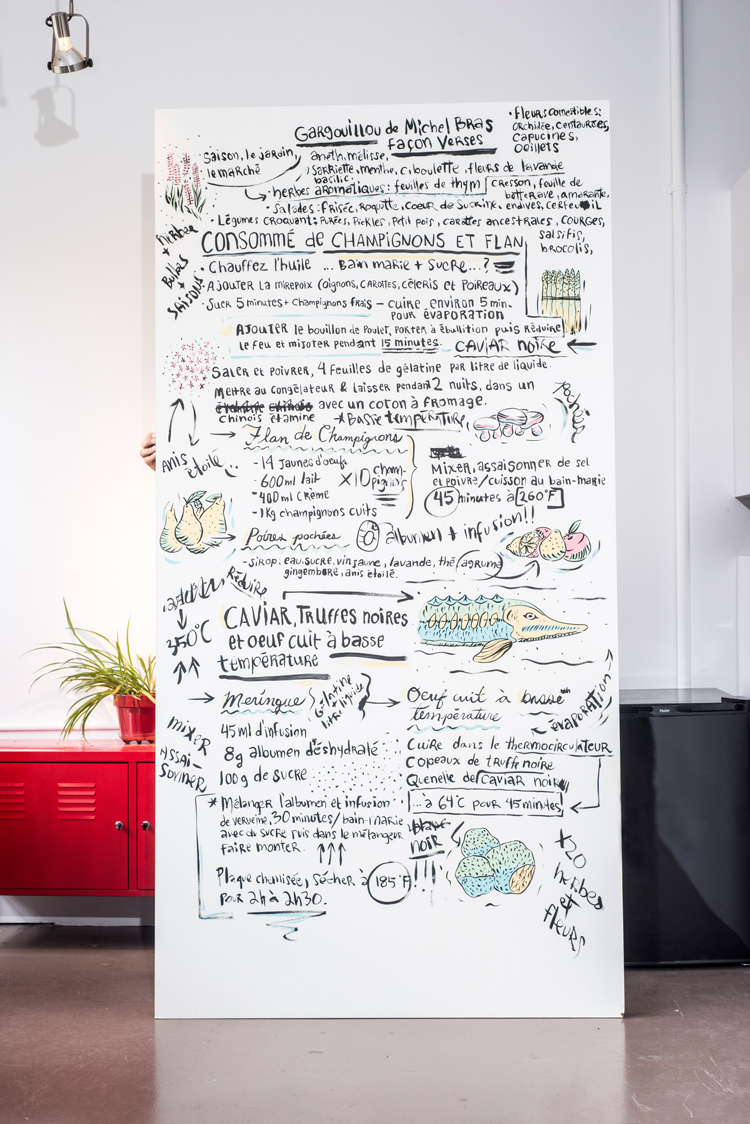 Gargouillou de Michel Bras
façon Verses
• Fleurs comestibles:
orchidée, centaurées,
capucines,
oeillets
Saison, le jardin,
le marché
aneth, mélisse,
sarriette, menthe, ciboulette, fleurs de lavande
basilic
herbes aromatiques: feuilles de thym
cresson, feuille de
betterave, amarante,
endives, cerfeuil
• Salades: frisée, roquette, coeur de sucrine,
• Légumes croquant: Purées, Pickles, Petit pois, carottes ancestrales, courges,
salsifis,
brocolis,
herbes
+
Bulbes
+
saisons!
CONSOMMÉ de CHAMPIGNONS ET FLAN
• Chauffez l'huile ... Bain marie + Sucre...?
• AJOUTER LA MIREPOIX (oignons, CAROTTES, céleris et Poireaux)
• Suer 5 minutes + Champignons frais - cuire environ 5 min.
POUR évaporation
AJOUTER le bouillon de Poulet, PORTER à ébullition puis Réduire
le feu et mijoter pendant 15 minutes.
CAVIAR noire
Saler et poivrer, 4 feuilles de gélatine par litre de liquide.
Mettre au congélateur & laisser pendant 2 nuits, dans un
chinois étamine
avec un coton à fromage.
* Basse température
Pochée
Anis
étoilé
Flan de Champignons
- 14 Jaunes d'oeufs
- 600ml lait
- 400ml crème
- 1Kg champignons cuits
X10 cham-
pignons
Mixer, assaisonner de sel
et poivre/cuisson au bain-marie
45 minutes à 260°F
Poires pochées
albumen + infusion!!
- sirop: eau, sucre, vin jaune, lavande, thé, agrume
gingembre, anis étoilé.
Réduire
350°C
CAVIAR, Truffes noires
et oeuf cuit à basse
température
Meringue
Gélatine
litre liquide
Oeuf cuit à basse
température
évaporation
mixer
Assai-
sonner
45 ml d'infusion
8g albumen déshydraté
100g de sucre
Cuire dans le thermocirculateur
Copeaux de truffe noire
Quenelle de caviar noir
...à 64°C pour 45 minutes
* Mélanger l'albumen et infusion
de verveine, 30 minutes/bain-marie
avec du sucre puis dans le mélangeur
faire monter.
noir
!!!
Plaque chemisée, sécher à 185°F
pour 2h à 2h30.
X20
herbes
et
fleurs
Haier